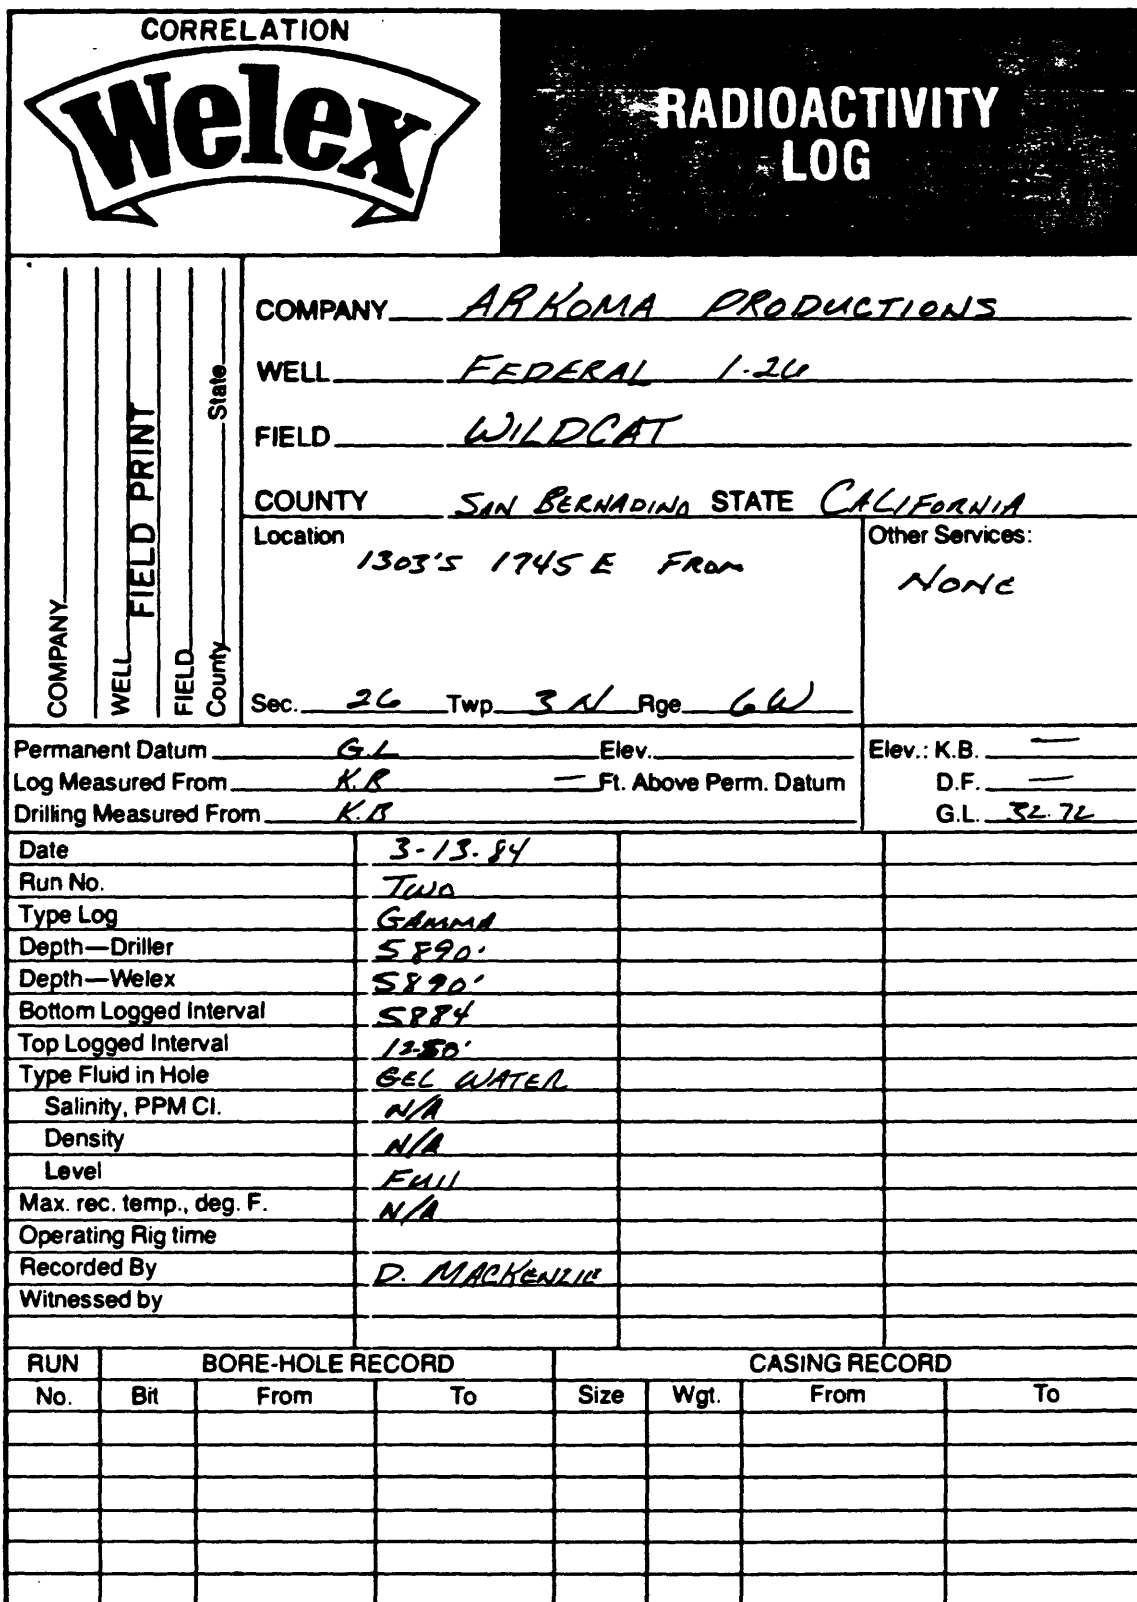 CORRELATION
Welex
RADIOACTIVITY
LOG
COMPANY
WELL
FIELD PRINT
FIELD
County State
COMPANY ARKOMA PRODUCTIONS
WELL FEDERAL 1-26
FIELD WILDCAT
COUNTY SAN BERNADINO STATE CALIFORNIA
Location
1303'S 1745 E FROM
Other Services:
NONE
Sec. 26 Twp. 3 N Rge 6 W
Permanent Datum G.L Elev. Elev.: K.B. —
Log Measured From K.B — Ft. Above Perm. Datum D.F. —
Drilling Measured From K.B G.L. 32.72
Date 3-13-84
Run No. TWO
Type Log GAMMA
Depth—Driller 5890'
Depth—Welex 5890'
Bottom Logged Interval 5884
Top Logged Interval
Type Fluid in Hole GEL WATER
Salinity, PPM Cl. N/A
Density N/A
Level FUll
Max. rec. temp., deg. F. N/A
Operating Rig time
Recorded By D. MACKENZIE
Witnessed by
RUN BORE-HOLE RECORD CASING RECORD
No. Bit From To Size Wgt. From To